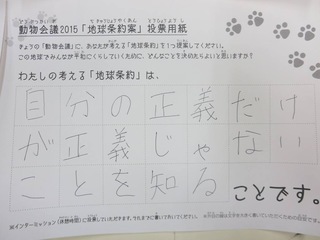 動物会議2015「地球条約案」投票用紙
きょうの「動物会議」に、あなたが考える「地球条約」を1つ提案してください。
この地球でみんなが平和にくらしていくために、どんなことを決めたらよいと思いますか？
わたしの考える「地球条約」は、
自分の正義だけ
が正義じゃない
ことを知る ことです。
※インターミッション(休憩時間)に投票していただきます。